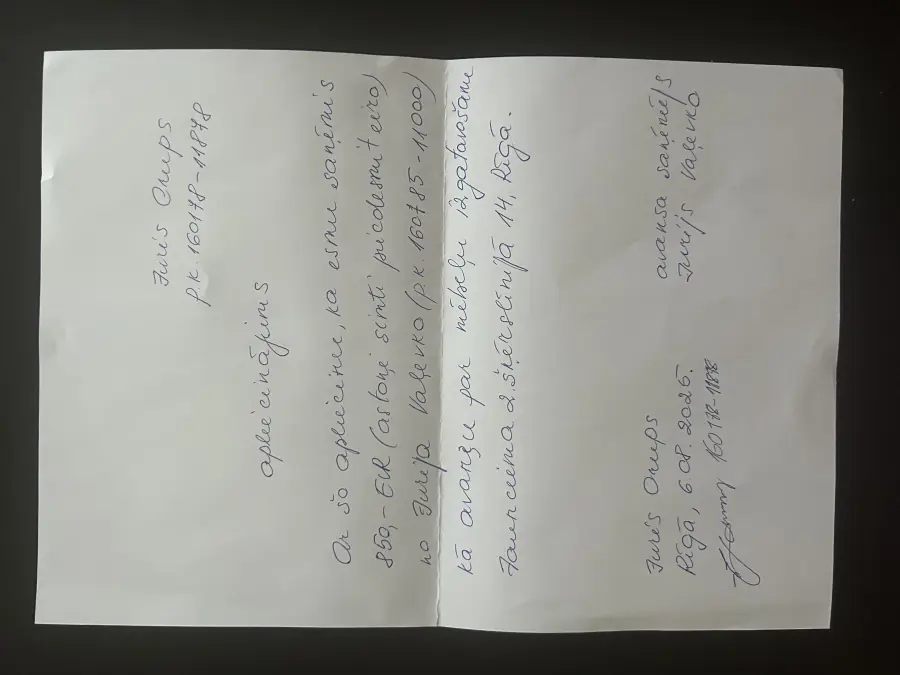 Juris Onups
p.k. 160178-11878
apliecinājums
Ar šo apliecinu, ka esmu saņēmis
850,- EUR (astoņi simti piecdesmit eiro)
no Jurija Vaļevko (p.k. 160785-11000)
kā avansu par mēbeļu izgatavošanu
Jaunciema 2.šķērslīnijā 14, Rīgā.
Juris Onups
Rīgā, 6.08.2025.
160178-11878
avansa saņēmējs
Jurijs Vaļevko